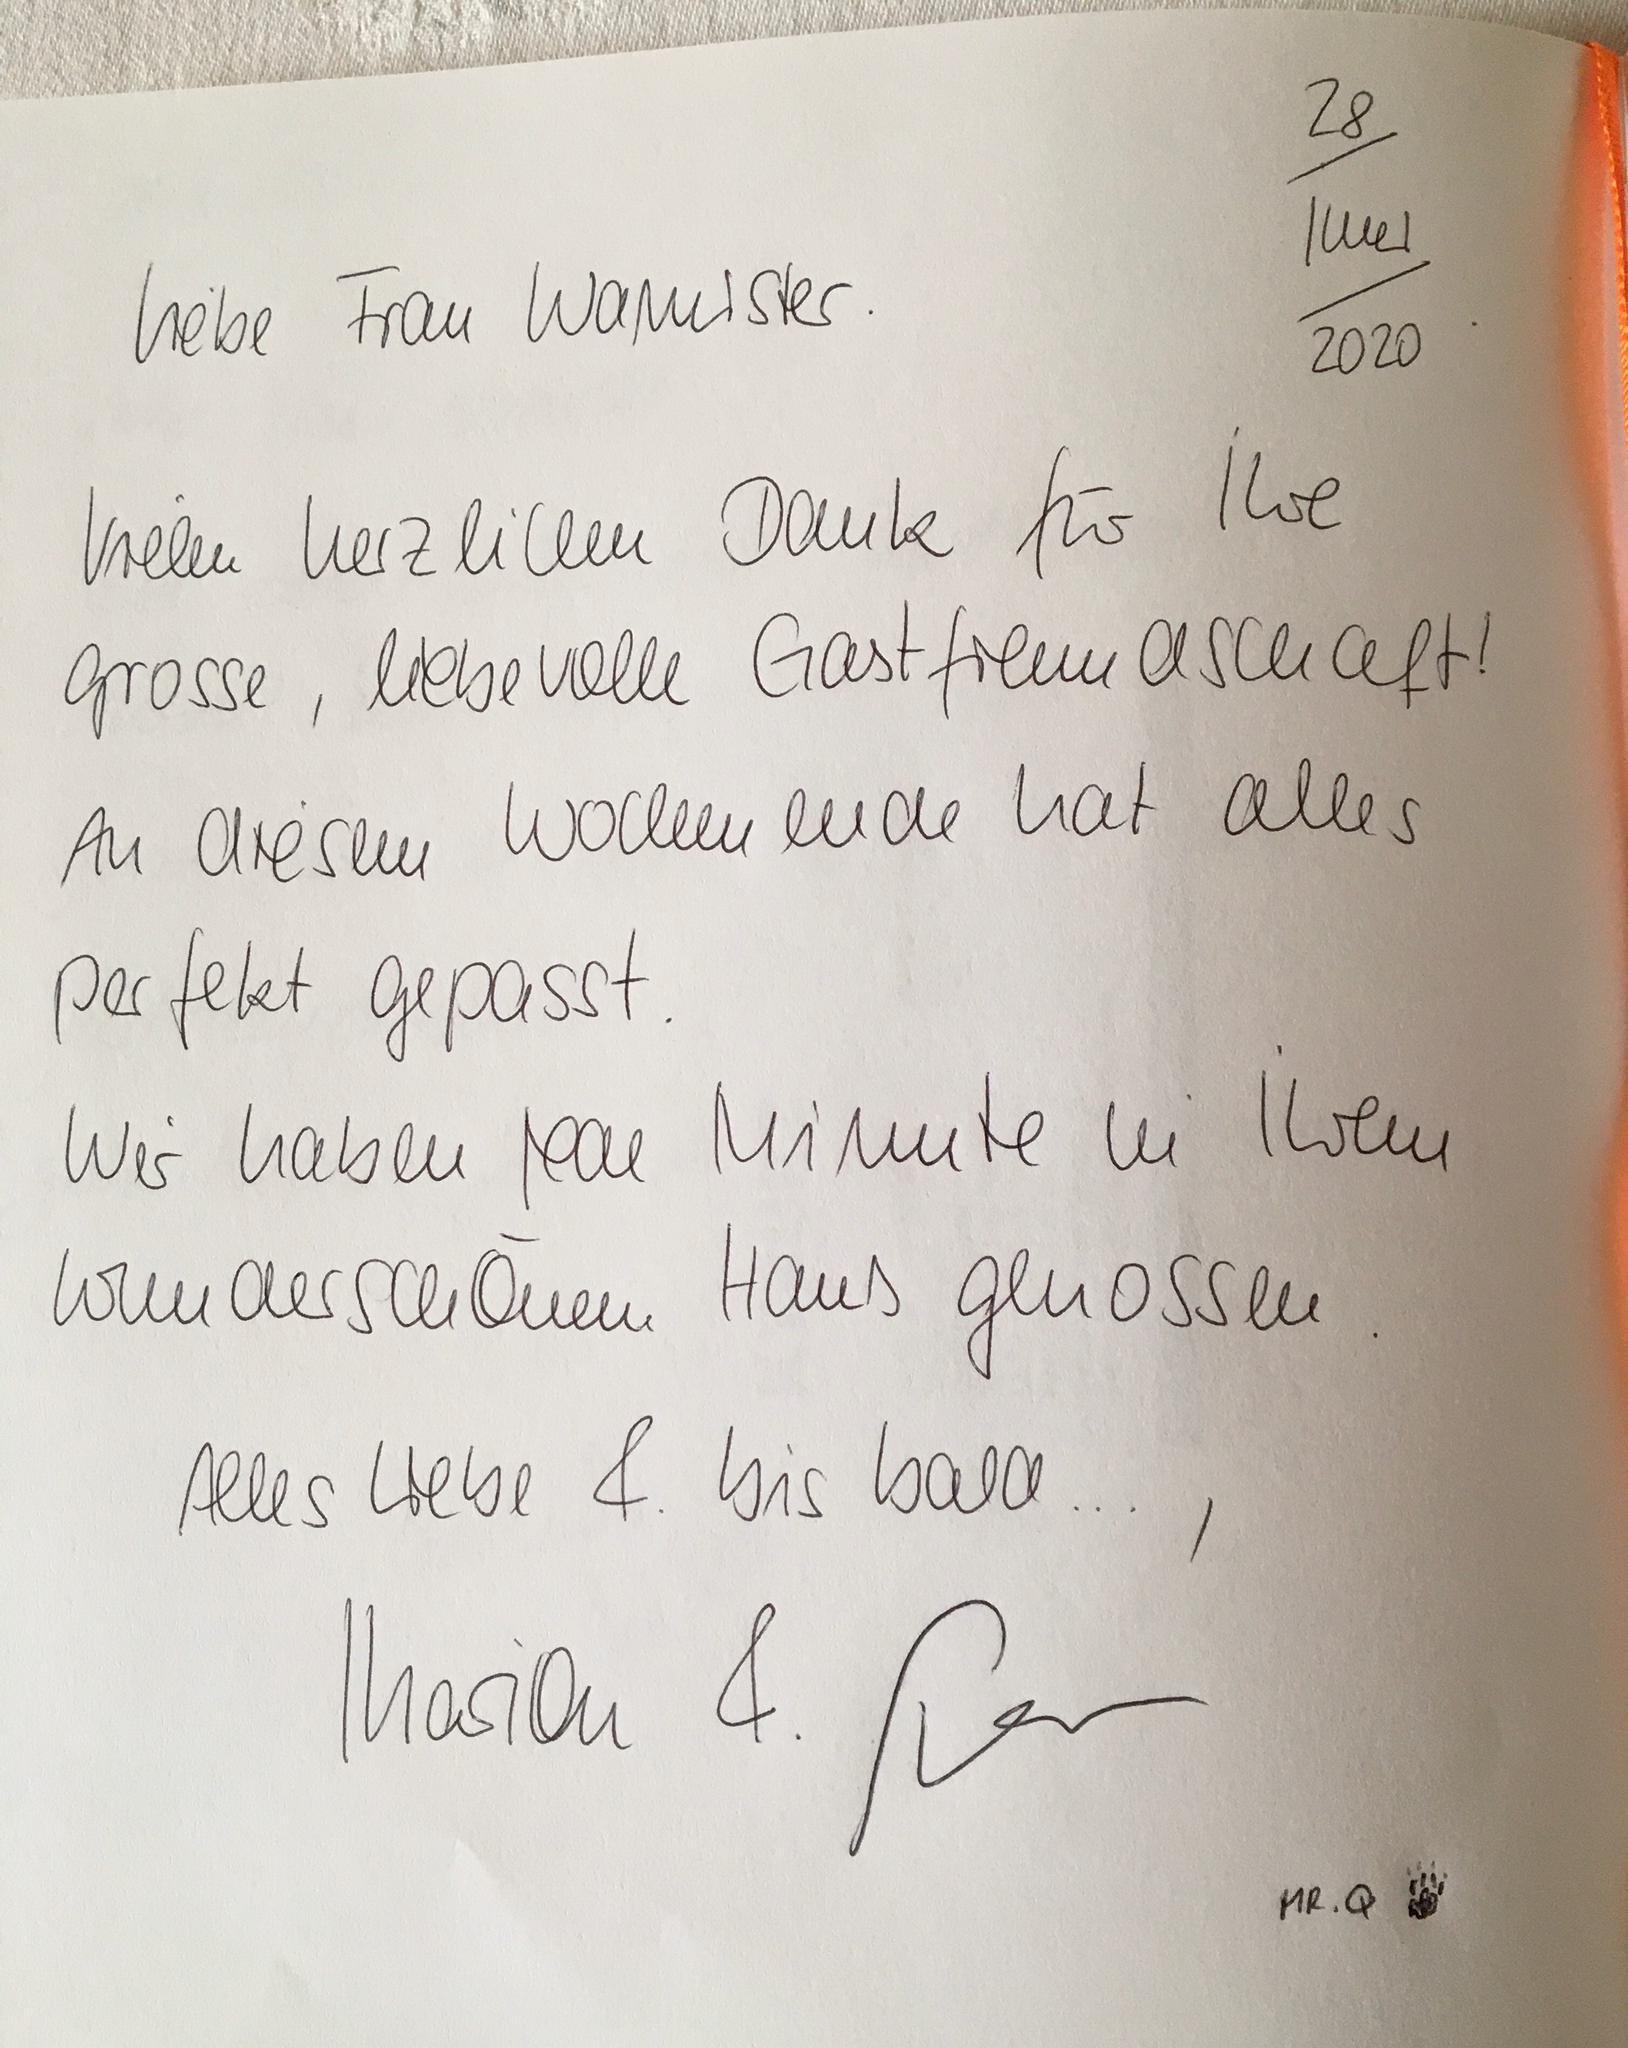 28
/
Mai
/
2020
Liebe Frau Wannister.
Vielen herzlichen Dank für Ihre
grosse, liebevolle Gastfreundschaft!
An diesem Wochenende hat alles
perfekt gepasst.
Wir haben jede Minute in Ihrem
wunderschönen Haus genossen.
Alles Liebe &. bis bald...,
Marion &.
MR.Q